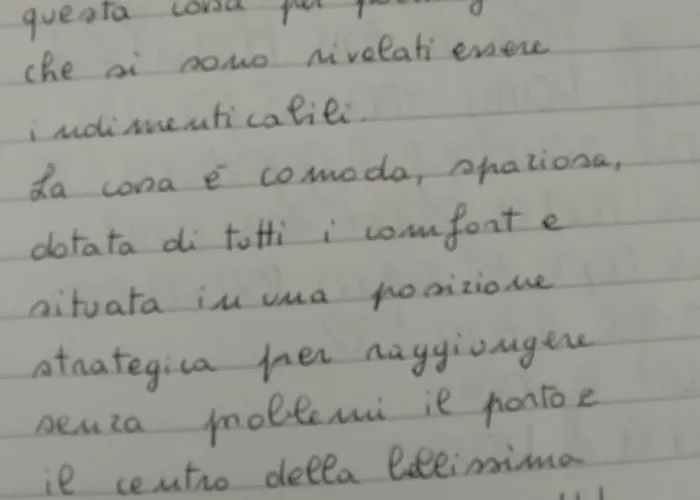 questa casa per
che si sono rivelati essere
indimenticabili.
La casa è comoda, spaziosa,
dotata di tutti i comfort e
situata in una posizione
strategica per raggiungere
senza problemi il porto e
il centro della bellissima